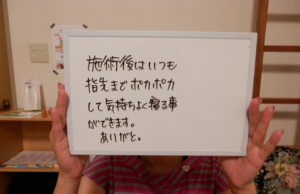 施術後はいつも
指先までポカポカ
して気持ちよく寝る事
ができます。
ありがと。